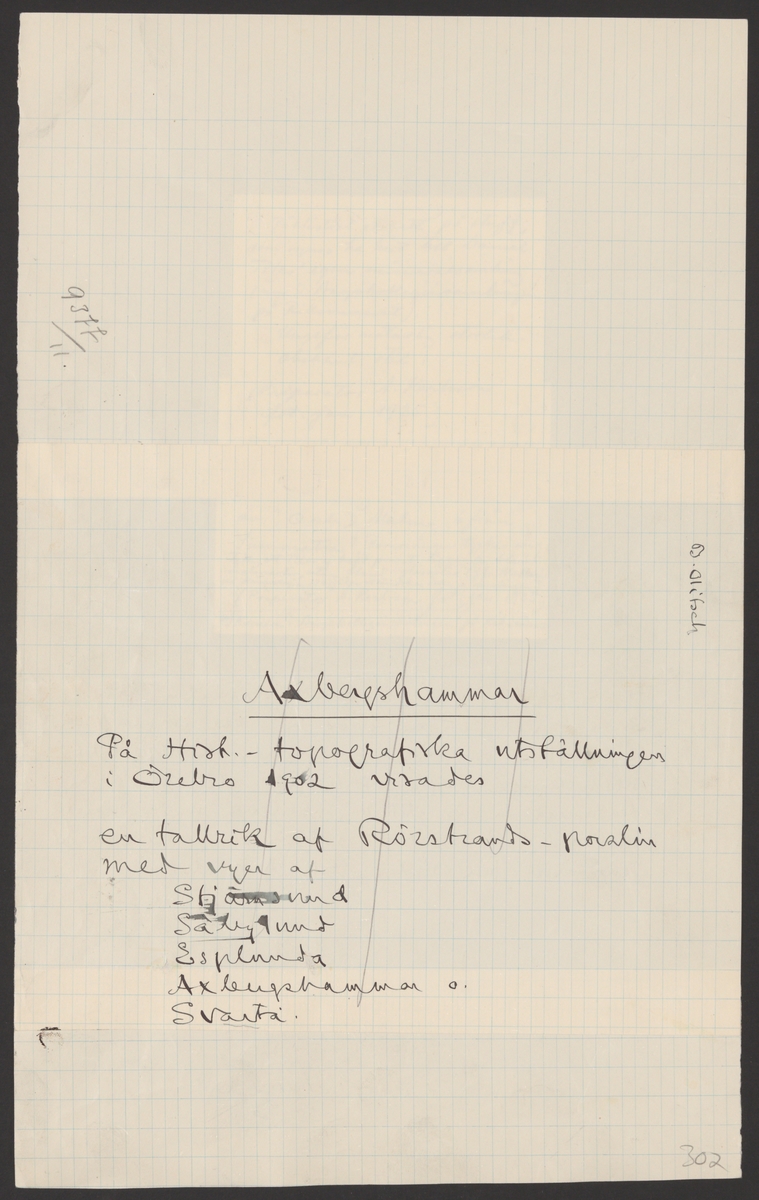 9377
/11.
Axbergshammar
På Hist. - topografiska utställningen
i Örebro 1902 visades
en tallrik af Rörstrands - porslin
med vyer af
Stjärnsund
Säbylund
Esplunda
Axbergshammar o.
Svartå.
302